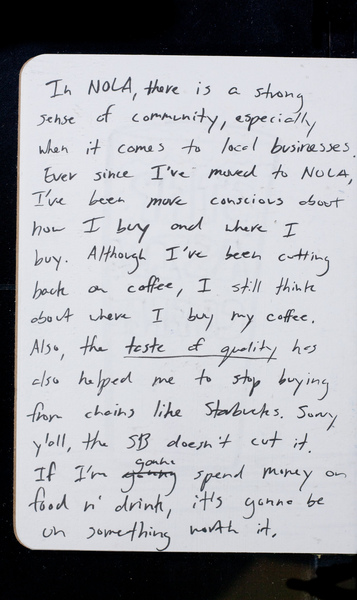 In NOLA, there is a strong
sense of community, especially
when it comes to local businesses.
Ever since I've moved to NOLA,
I've been more conscious about
how I buy and where I
buy. Although I've been cutting
back on coffee, I still think
about where I buy my coffee.
Also, the taste of quality has
also helped me to stop buying
from chains like Starbucks. Sorry
y'all, the SB doesn't cut it.
If I'm gonna spend money on
food n' drink, it's gonna be
on something worth it.